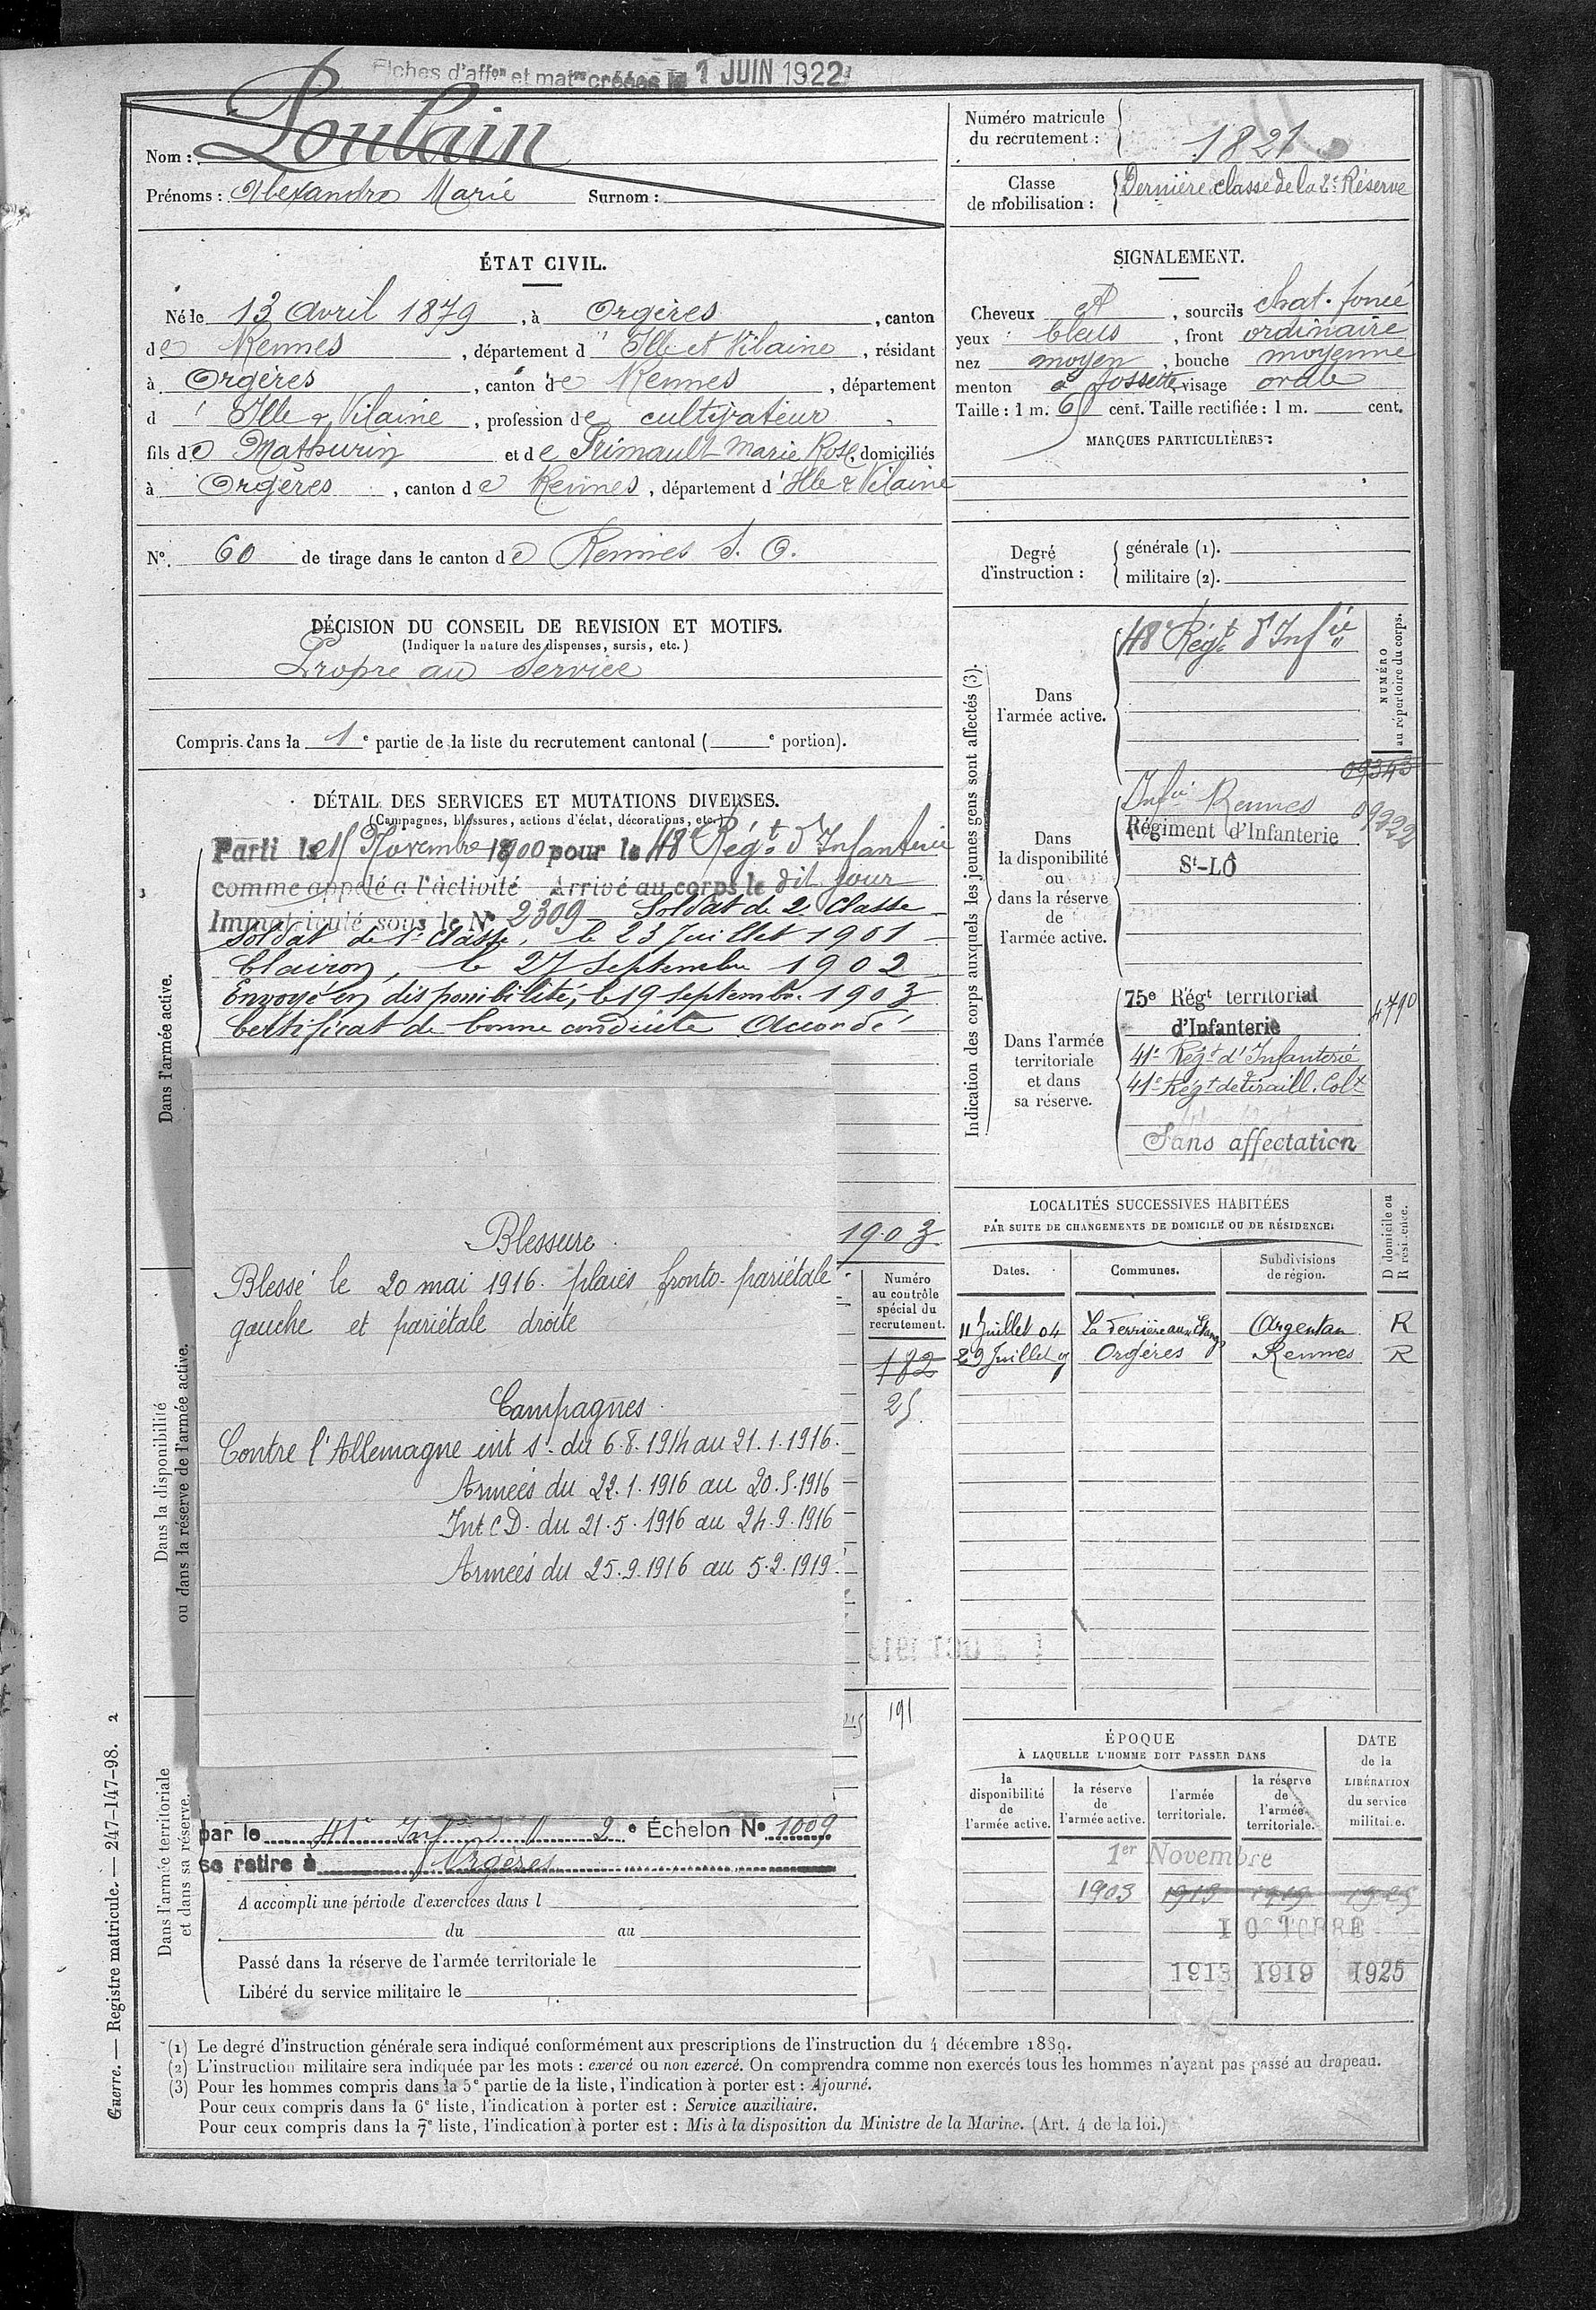 Fiches d'aff^on et mat^re créées le 1 JUIN 1922
Nom : Poulain
Prénoms : Alexandre Marie Surnom :
Numéro matricule du recrutement : 1821
Classe de mobilisation : Dernière classe de la 2e Réserve
ÉTAT CIVIL.
Né le 13 Avril 1879, à Orgères, canton
de Rennes, département d'Ille et Vilaine, résidant
à Orgères, canton de Rennes, département
d'Ille & Vilaine, profession de cultivateur
fils de Mathurin et de Primault Marie Rose, domiciliés
à Orgères, canton de Rennes, département d'Ille & Vilaine
N°. 60 de tirage dans le canton de Rennes S. O.
SIGNALEMENT.
Cheveux et, sourcils chat. foncé
yeux bleus, front ordinaire
nez moyen, bouche moyenne
menton à fossette, visage ovale
Taille : 1 m. 61 cent. Taille rectifiée : 1 m. cent.
MARQUES PARTICULIÈRES :
Degré d'instruction : générale (1).
militaire (2).
DÉCISION DU CONSEIL DE REVISION ET MOTIFS.
(Indiquer la nature des dispenses, sursis, etc.)
Propre au service
Compris dans la 1e partie de la liste du recrutement cantonal ( e portion).
DÉTAIL DES SERVICES ET MUTATIONS DIVERSES.
(Campagnes, blessures, actions d'éclat, décorations, etc.)
Dans l'armée active.
Parti le 15 Novembre 1900 pour le 48e Régt d'Infanterie
comme appelé à l'activité Arrivé au corps le dit jour
Immatriculé sous le N° 2309 Soldat de 2e Classe
Soldat de 1e Classe, le 23 Juillet 1901
Clairon, le 27 Septembre 1902
Envoyé en disponibilité, le 19 septembre 1903
Certificat de bonne conduite Accordé
1903
Blessure
Blessé le 20 mai 1916. plaies fronto-pariétale
gauche et pariétale droite
Campagnes
Contre l'Allemagne int s^r du 6.8.1914 au 21.1.1916.
Armées du 22.1.1916 au 20.5.1916
Int C D. du 21.5.1916 au 24.9.1916
Armées du 25.9.1916 au 5.2.1919.
Dans la disponibilité
ou dans la réserve de l'armée active.
Numéro
au contrôle
spécial du
recrutement.
182
25
191
Dans l'armée territoriale
et dans sa réserve.
par le 41e Inf 2e Échelon N° 1009
se retire à Orgères
A accompli une période d'exercices dans l
du au
Passé dans la réserve de l'armée territoriale le
Libéré du service militaire le
Indication des corps auxquels les jeunes gens sont affectés (3).
NUMÉRO
au répertoire du corps.
Dans
l'armée active.
48e Régt d'Infie
09343
Dans
la disponibilité
ou
dans la réserve
de
l'armée active.
Infie Rennes
Régiment d'Infanterie
St-LÔ
09222
Dans l'armée
territoriale
et dans
sa réserve.
75e Régt territorial
d'Infanterie
4710
41e Régt d'Infanterie
41e Régt de tiraill. Colx
Sans affectation
LOCALITÉS SUCCESSIVES HABITÉES
PAR SUITE DE CHANGEMENTS DE DOMICILE OU DE RÉSIDENCE.
Dates. Communes. Subdivisions de région. D domicile ou R résidence.
11 Juillet 04 La Ferrière aux Étangs Argentan R
29 Juillet Orgères Rennes R
ÉPOQUE
À LAQUELLE L'HOMME DOIT PASSER DANS
la disponibilité de l'armée active.
la réserve de l'armée active.
l'armée territoriale.
la réserve de l'armée territoriale.
DATE de la LIBÉRATION du service militaire.
1er Novembre
1903 1913 1919 1925
1 OCTOBRE
1913 1919 1925
(1) Le degré d'instruction générale sera indiqué conformément aux prescriptions de l'instruction du 4 décembre 1889.
(2) L'instruction militaire sera indiquée par les mots : exercé ou non exercé. On comprendra comme non exercés tous les hommes n'ayant pas passé au drapeau.
(3) Pour les hommes compris dans la 5e partie de la liste, l'indication à porter est : Ajourné.
Pour ceux compris dans la 6e liste, l'indication à porter est : Service auxiliaire.
Pour ceux compris dans la 7e liste, l'indication à porter est : Mis à la disposition du Ministre de la Marine. (Art. 4 de la loi.)
Guerre. — Registre matricule. — 247-147-98. 2